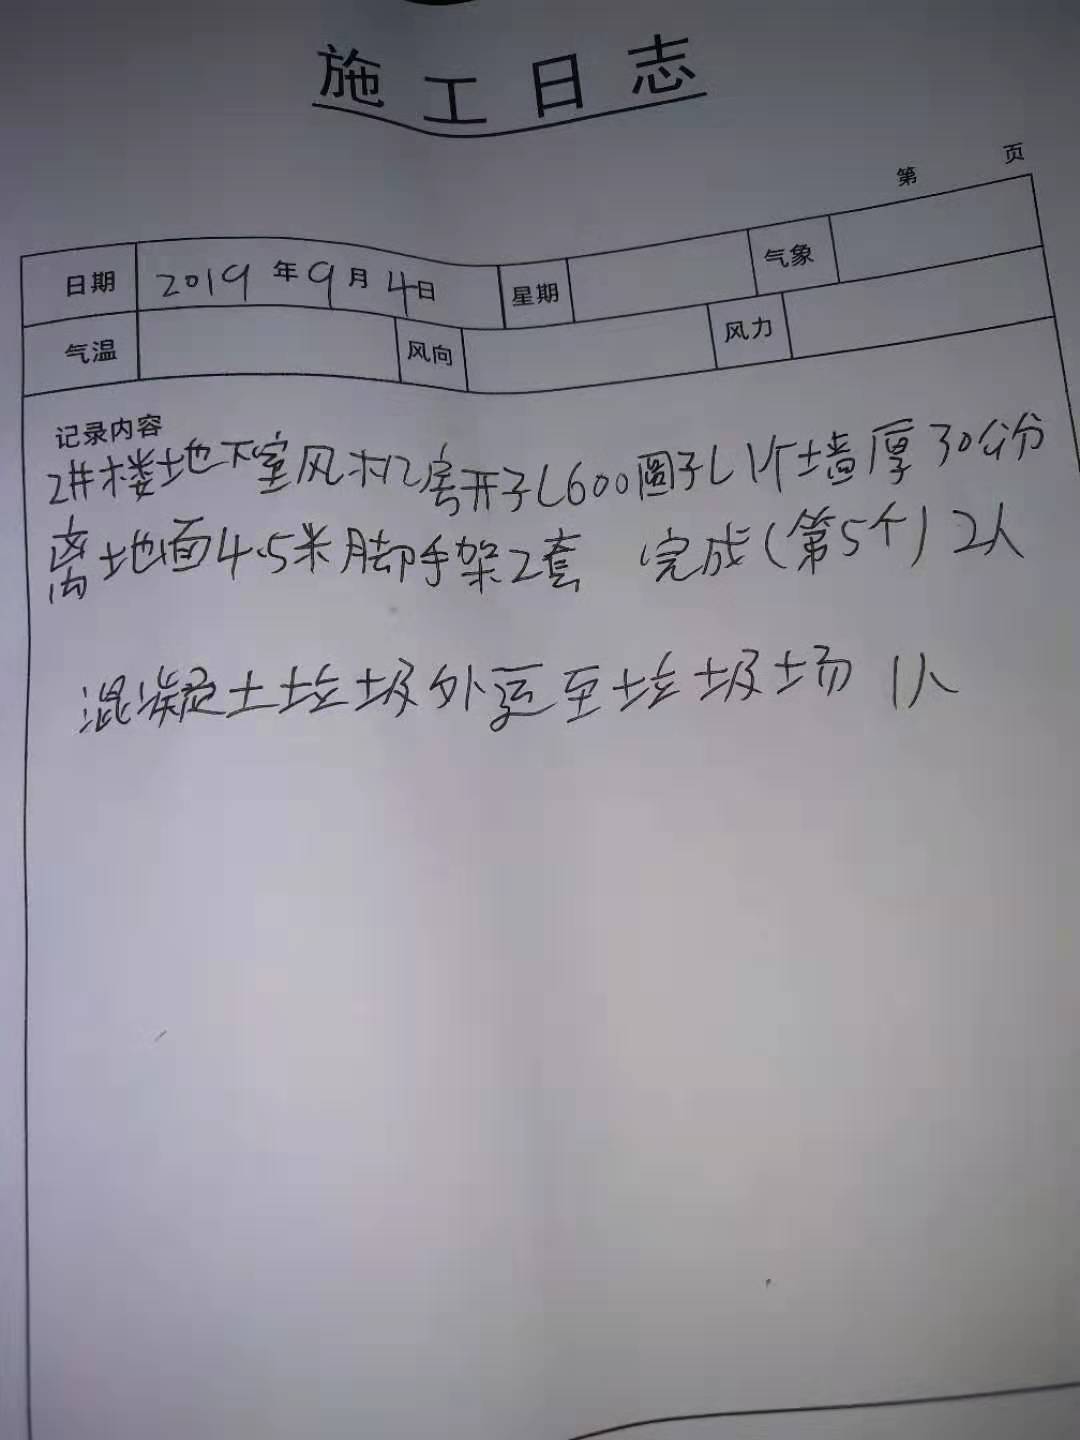 施工日志
第 页
日期 2019年9月4日 星期 气象
气温 风向 风力
记录内容
2#楼地下室风机房开孔600圆孔1个墙厚30公分
离地面4.5米脚手架2套 完成(第5个)2人
混凝土垃圾外运至垃圾场 1人